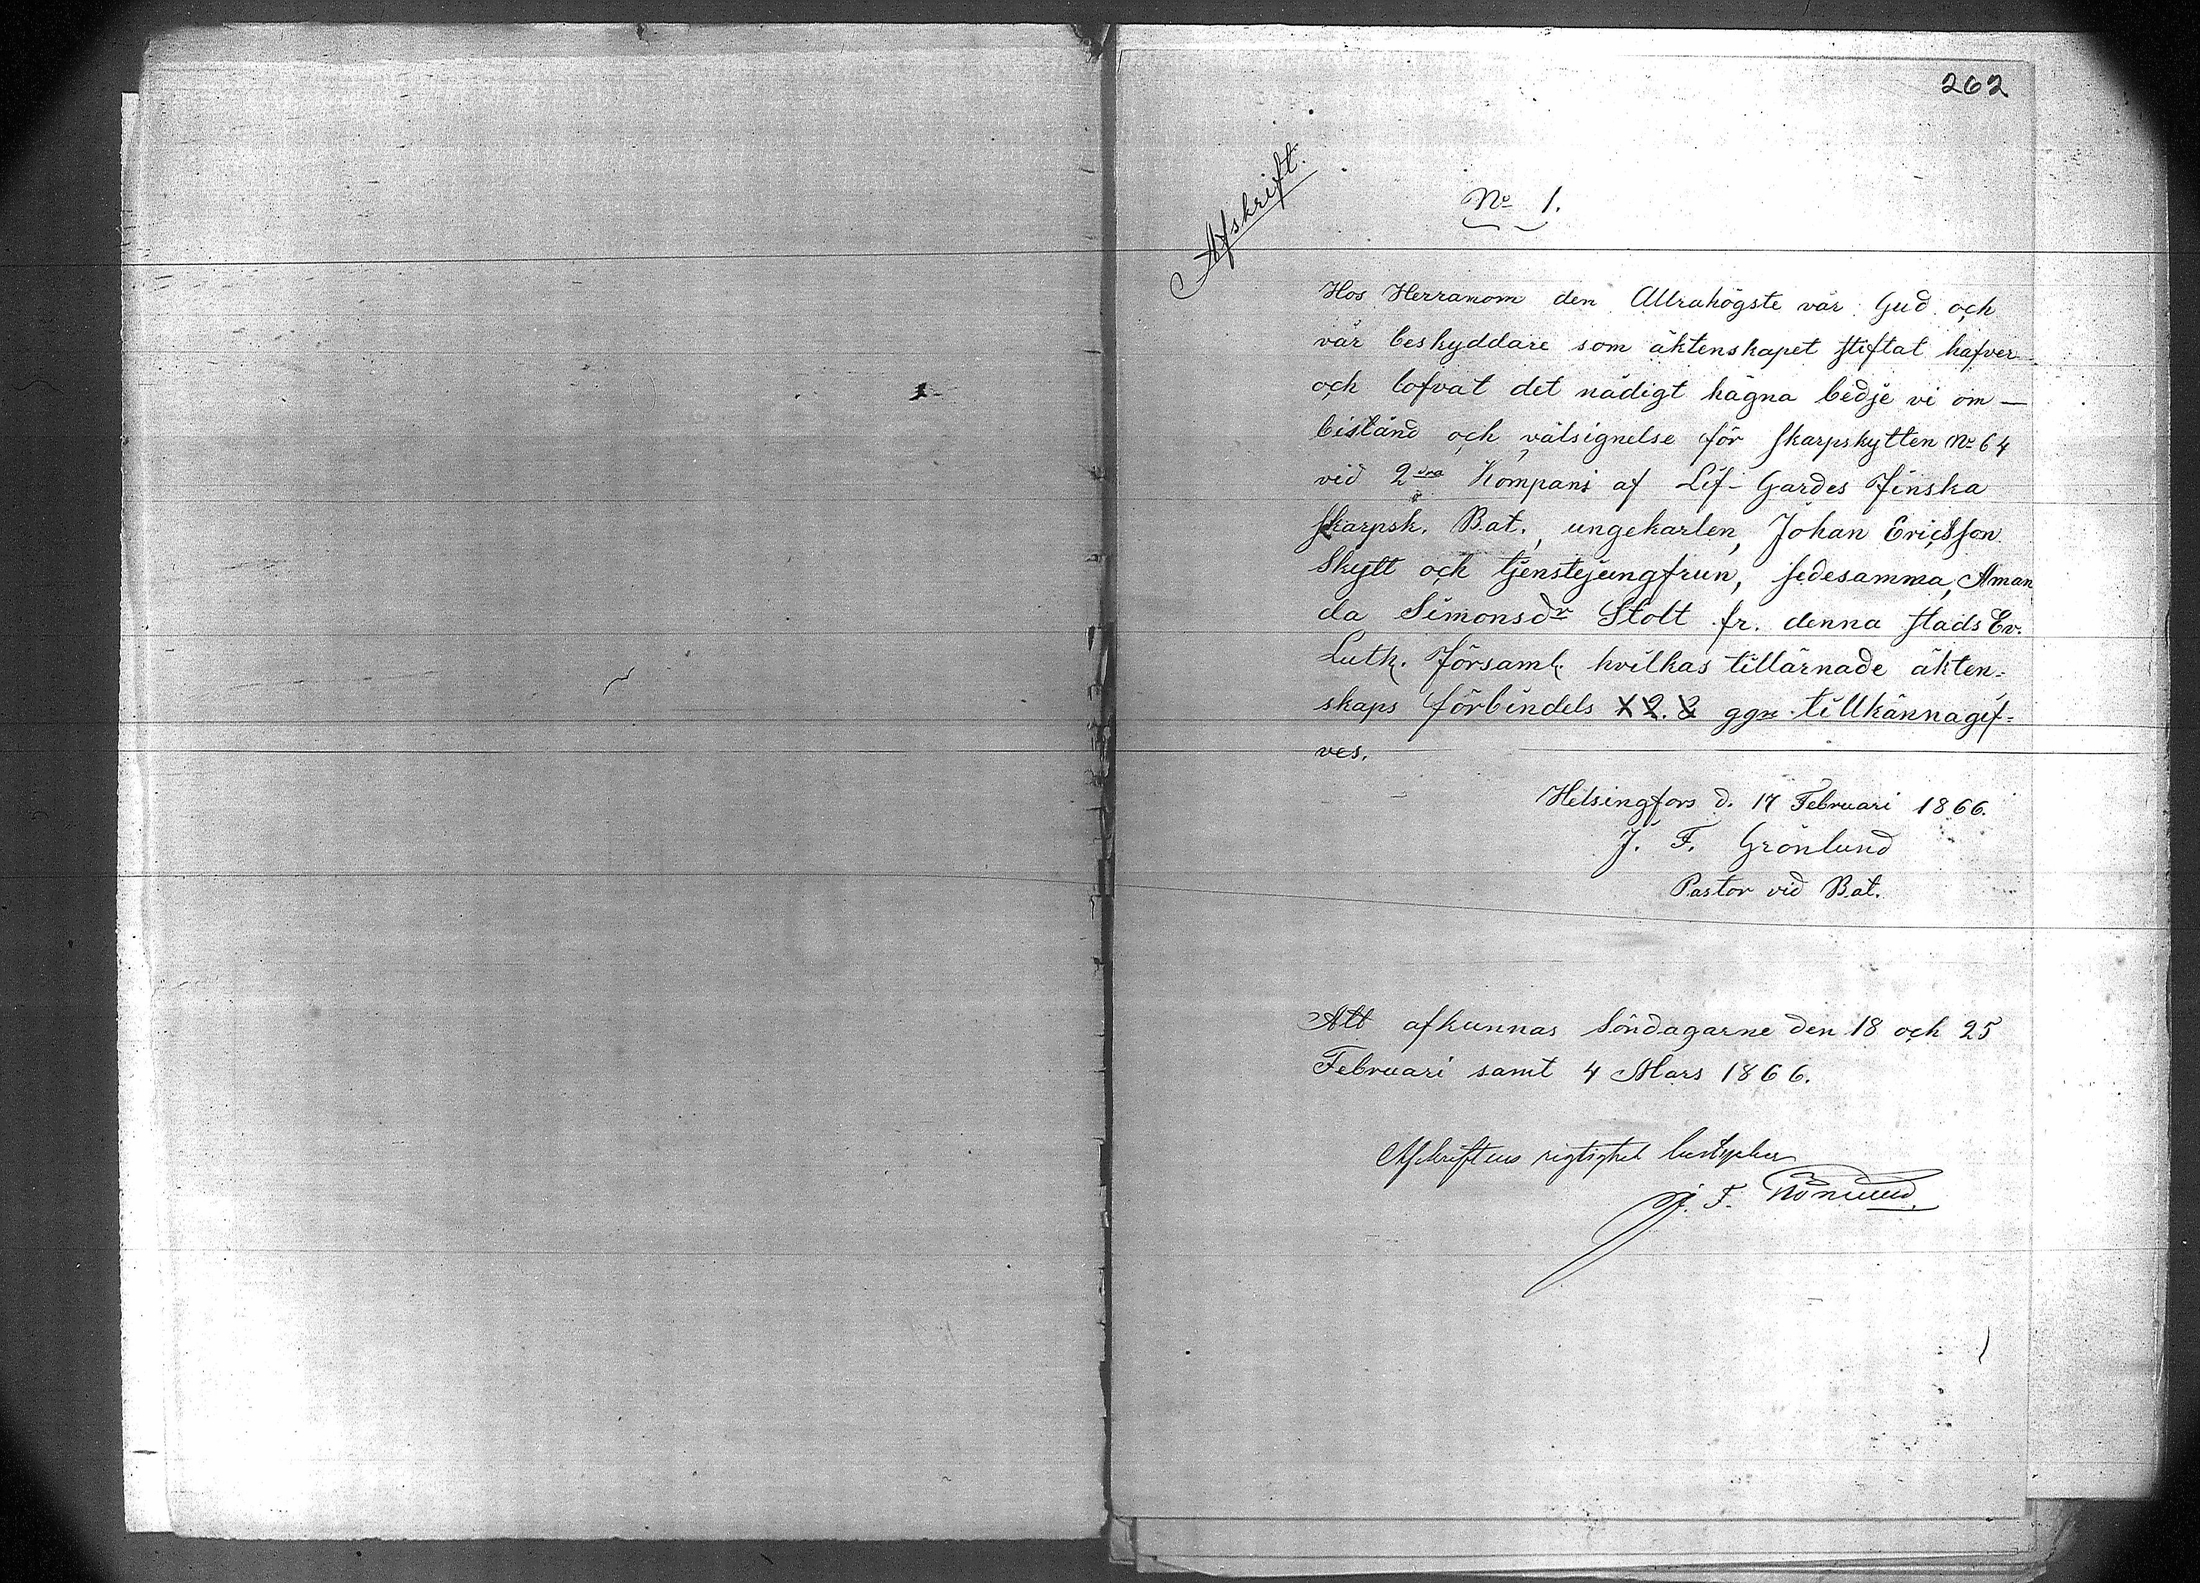 262
Afskrift.
No 1.
Hos Herranom den Allrahögste vår Gud och
vår beskyddare som äktenskapet stiftat hafver
och lofvat det nådigt hägna bedje vi om —
bistånd och välsignelse för skarpskytten No 64
vid 2dra Kompani af Lif-Gardes Finska
skarpsk. Bat., ungekarlen, Johan Ericsson
Skytt och tjenstejungfrun, sedesamma, Aman
da Simonsdr Stolt fr. denna stads Ev.
Luth. Församl. hvilkas tillärnade äkten=
skaps förbindels X 2. 3 ggr tillkännagif=
ves.
Helsingfors d. 17 Februari 1866.
J. F. Grönlund
Pastor vid Bat.
Att afkunnas Söndagarne den 18 och 25
Februari samt 4 Mars 1866.
Afskriftens rigtighet bestyrker
J. F. Grönlund.